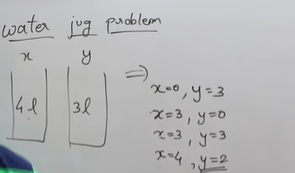 water jug problem
x y
4l 3l ⇒
x=0, y=3
x=3, y=0
x=3, y=3
x=4, y=2